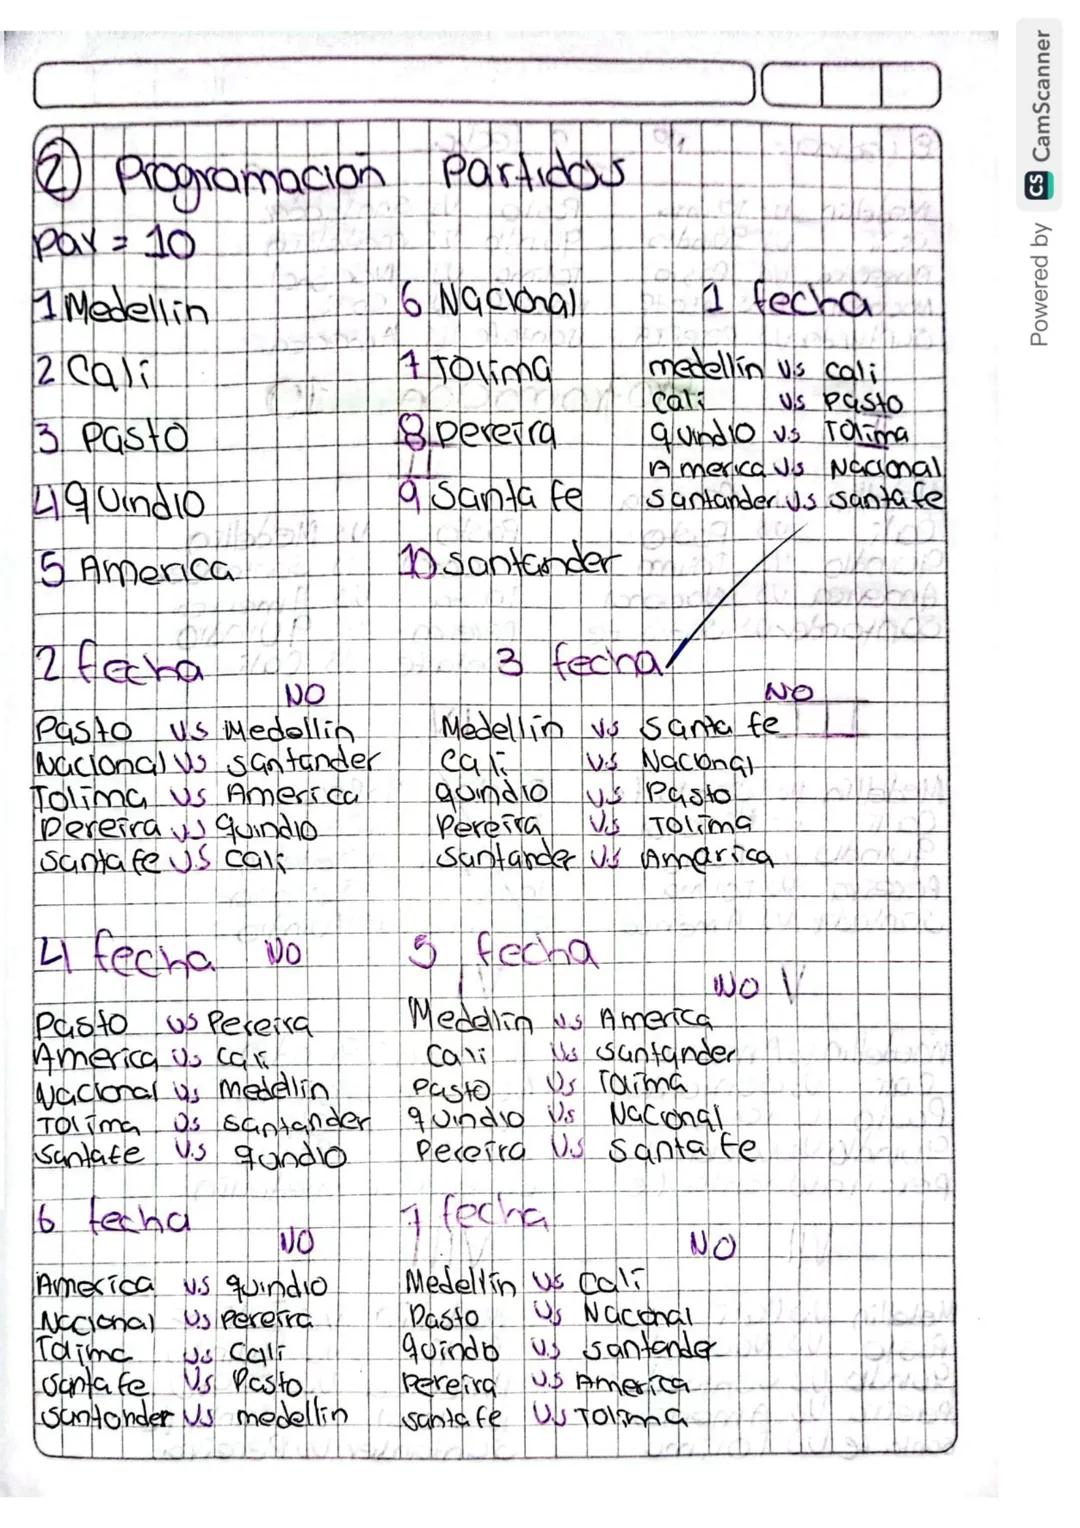 ② Programacion Partidos
par = 10
1 Medellin
2 Cali
3 Pasto
4 quindio
5 America
6 Nacional
7 Tolima
8 pereira
9 Santa fe
10 santander
1 fecha
medellin vs cali
Cali vs Pasto
quindio vs Tolima
America vs Nacional
santander vs santa fe
2 fecha
NO
Pasto vs Medellin
Nacional vs santander
Tolima vs America
Pereira vs quindio
santa fe vs cali
3 fecha
NO
Medellin vs santa fe
Cali vs Nacional
quindio vs Pasto
Pereira vs Tolima
santander vs America
4 fecha NO
Pasto vs Pereira
America vs cali
Nacional vs medellin
Tolima vs santander
santafe vs qundio
5 fecha
NO
Medellin vs America
Cali vs santander
Pasto vs Tolima
quindio vs Nacional
Pereira vs Santa fe
6 fecha
NO
America vs quindio
Nacional vs pereira
Tolima vs Cali
santa fe vs Pasto
santander vs medellin
7 fecha
NO
Medellin vs Cali
Pasto vs Nacional
quindio vs santander
Pereira vs America
santa fe vs Tolima
Powered by CS CamScanner